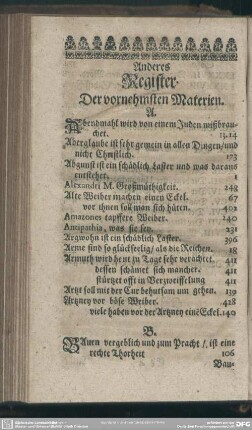 Anderes
Register.
Der vornehmsten Materien.
A.
Abendmahl wird von einem Juden mißbrau-
chet. 13.14
Aberglaube ist sehr gemein in allen Dingen/und
nicht Christlich. 173
Abgunst ist ein schädlich Laster und was daraus
entstehet. 1
Alexandri M. Großmühtigkeit. 248
Alte Weiber machen einen Eckel. 67
vor ihnen sol man sich hüten. 402
Amazones tapffere Weiber. 240
Antipathia, was sie sey. 231
Argwohn ist ein schädlich Laster. 396
Arme sind so glückselig/ als die Reichen. 18
Armuth wird heut zu Tage sehr verachtet. 411
dessen schämet sich mancher. 411
stürtzet offt in Verzweiffelung 411
Artzt soll mit der Cur behutsam um gehen. 139
Artzney vor böse Weiber. 428
viele haben vor der Artzney eine Eckel. 140
B.
Bauen vergeblich und zum Pracht/ ist eine
rechte Thorheit 106
Bau-